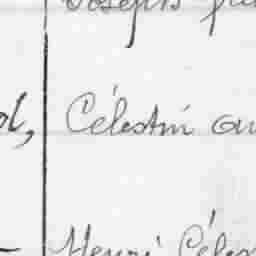 Joseph
ol, Célestin
Henri Céles